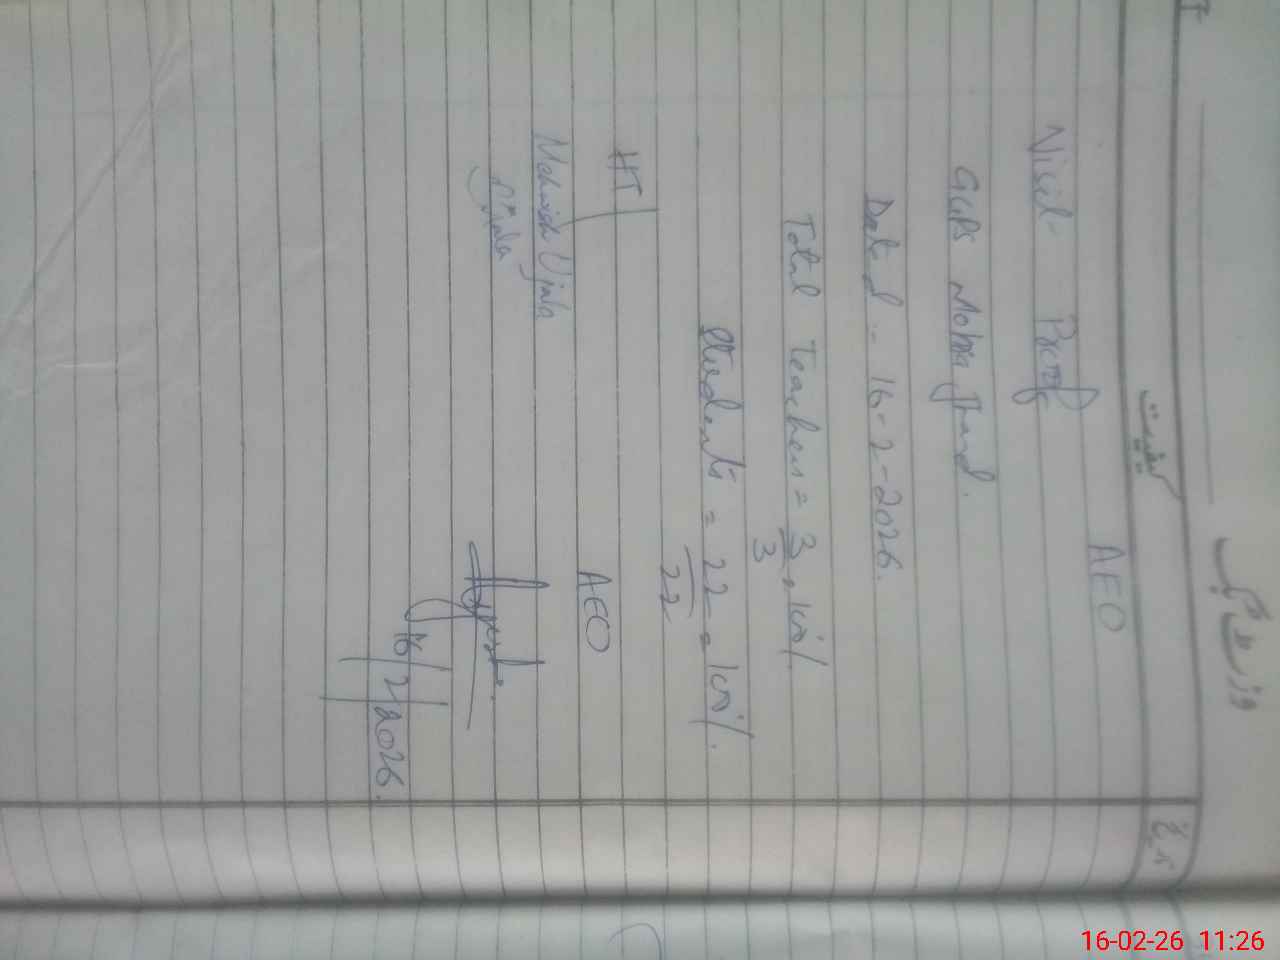 کیفیت
AEO
Visit Proof
GGPS Mohra Jhand.
Dated :- 16-2-2026.
Total Teachers = 3/3 = 100%
Students = 22/22 = 100%.
HT
AEO
Mehwish Ujala
Ujala
16/2/2026.
16-02-26 11:26